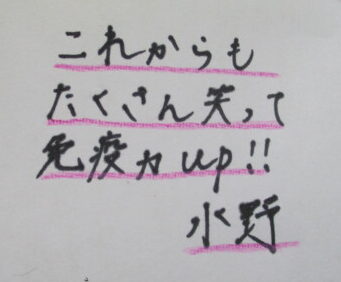 これからも
たくさん笑って
免疫力up!!
水野